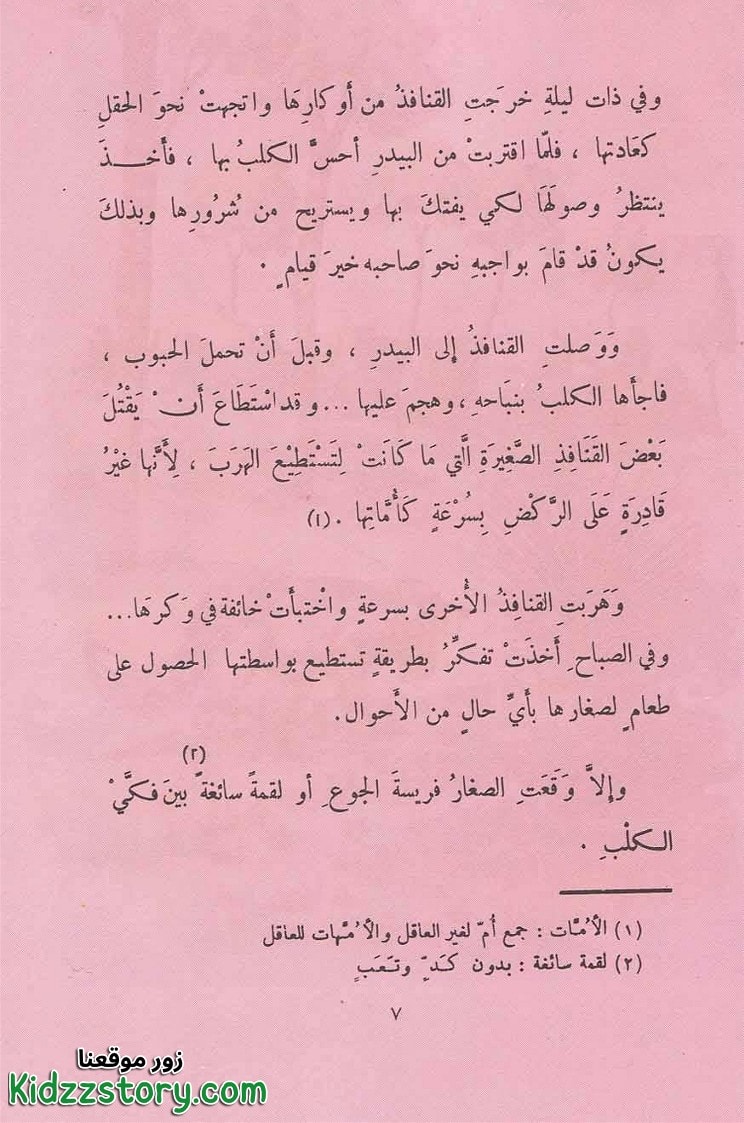 وفي ذات ليلةِ خرجَتِ القنافذُ من أَوكارِهَا واتجهتْ نحوَ الحقلِ
كعَادتها ، فلمّا اقتربتْ من البيدرِ أحسَّ الكلبُ بها ، فأَخذَ
ينتظرُ وصولَهَا لكمي يفتكَ بها ويستريح من شُرورِها وبذلكَ
يكونُ قدْ قامَ بواجبهِ نحوَ صاحبه خيرَ قيامٍ .
وَوَصلتِ القنافذُ إلى البيدرِ ، وقبلَ أَنْ تحملَ الحبوب ،
فاجأَها الكلبُ بنبَاحهِ ، وهجمَ عليها ... وقد اسْتَطَاعَ أَنْ يَقْتُلَ
بَعْضَ القَنَافِذِ الصَّغِيرَةِ الَّتي مَا كَانَتْ لِتَسْتَطِيعَ الهَرَبَ ، لِأَنَّها غَيْرُ
قَادِرَةٍ عَلَى الرَّكْضِ بِسُرْعَةٍ كَأُمَّاتِها . (١)
وَهَرَبَتِ القنافِذُ الأُخرى بسرعةٍ واخْتبأَتْ خائفة في وَكرهَا...
وفي الصباحِ أَخذَتْ تفكِّرُ بطريقةٍ تستطيع بواسطتها الحصول على
طعامٍ لصغارها بأَيِّ حالٍ من الأَحوال.
(٢)
وإلاَّ وَقَعَتِ الصغارُ فريسةَ الجوعِ أو لقمةً سائغةً بينَ فكيَّْ
الكلْبِ .
(١) الأُمَّات : جمع أُمّ لغير العاقل والأُمَّهات للعاقل
(٢) لقمة سائغة : بدون كَدٍّ وتَعَبٍ
٧
زور موقعنا
Kidzzstory.com